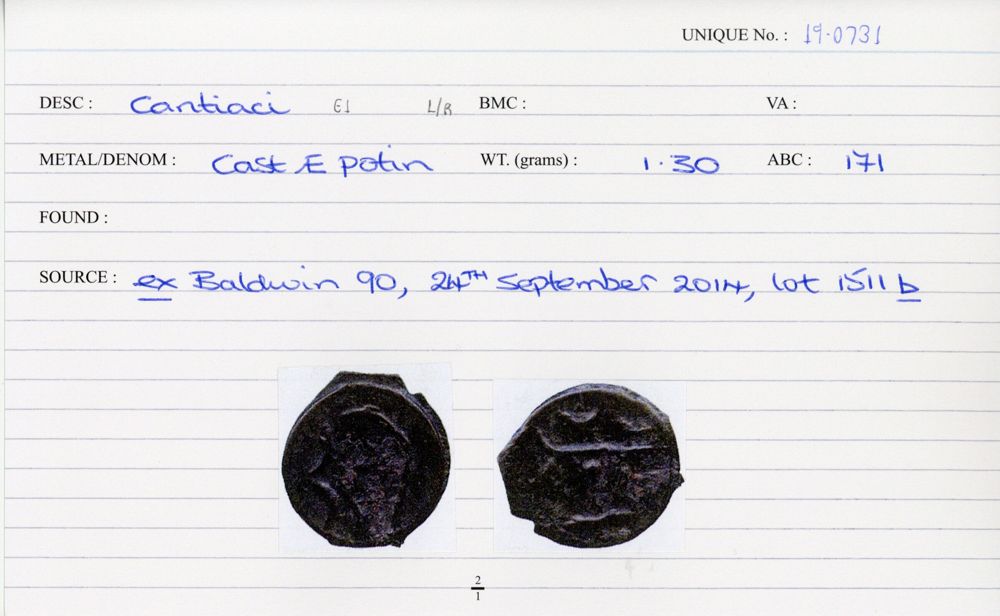 UNIQUE No. : 19·0731
DESC : Cantiaci E1 L/R BMC : VA :
METAL/DENOM : Cast Æ potin WT. (grams) : 1·30 ABC : 171
FOUND :
SOURCE : ex Baldwin 90, 24TH September 2014, lot 1511 b
2
1